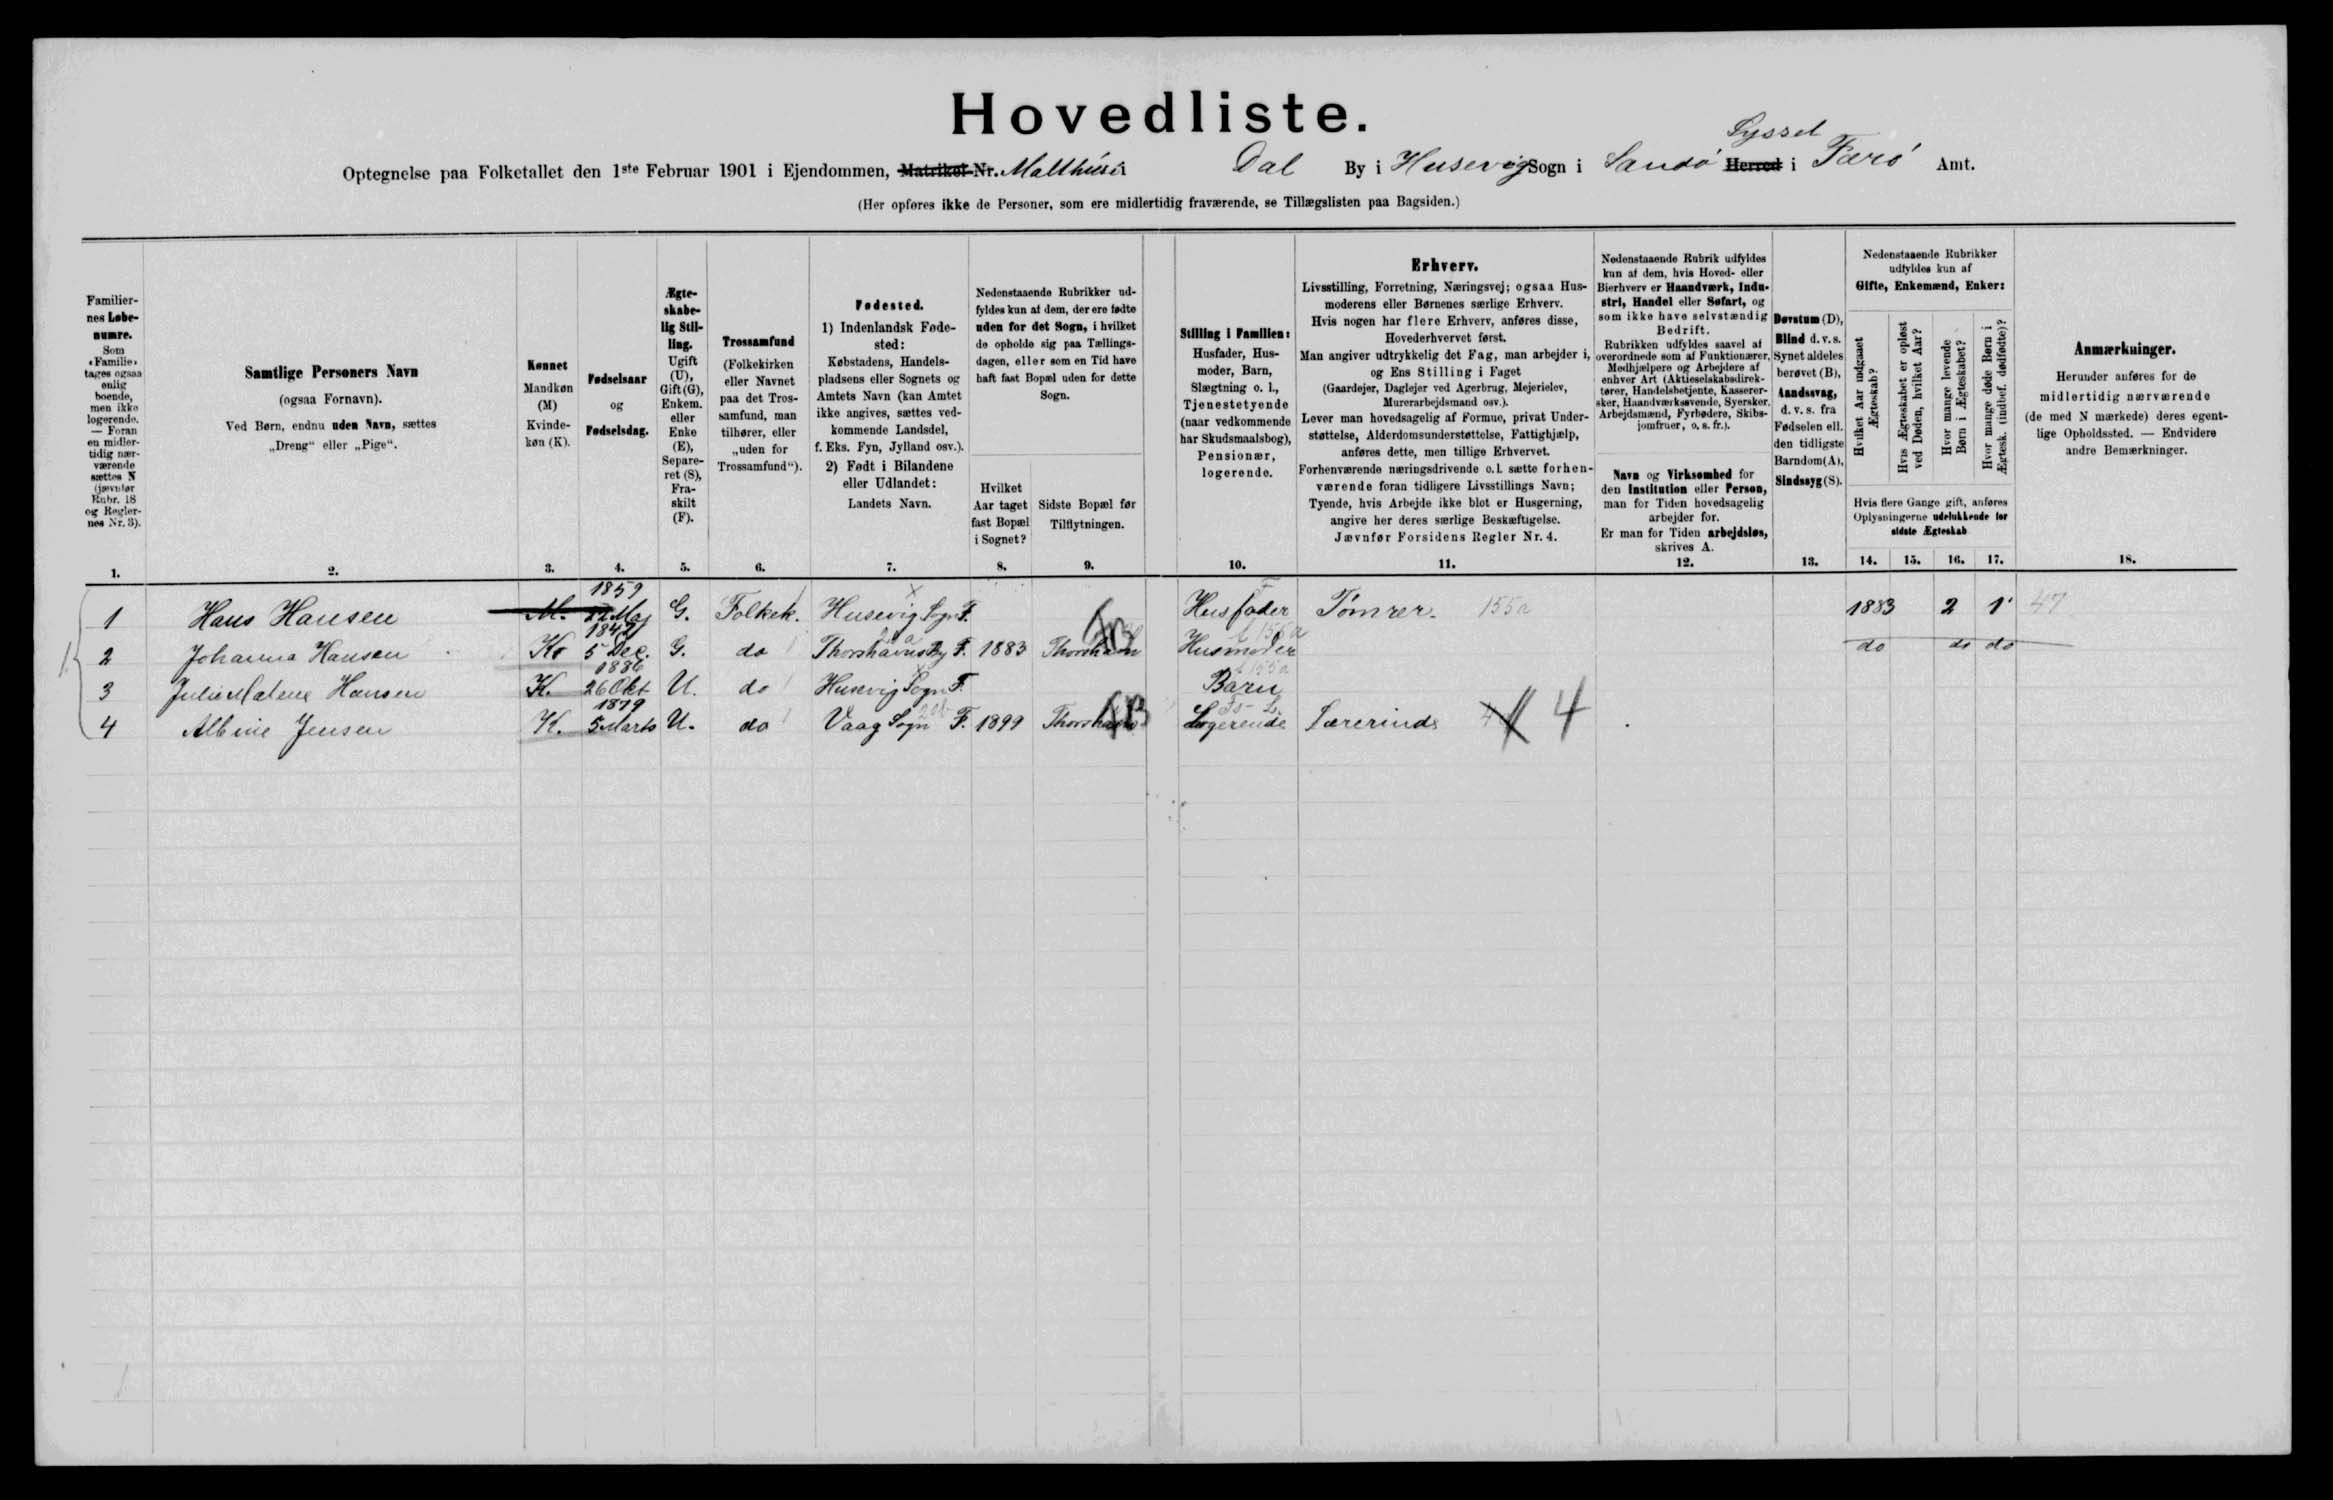 Hovedliste.
Syssel
Optegnelse paa Folketallet den 1ste Februar 1901 i Ejendommen, Matrikel-Nr. Malthúsi i Dal By i Husevig Sogn i Sandø Herred i Færø Amt.
(Her opføres ikke de Personer, som ere midlertidig fraværende, se Tillægslisten paa Bagsiden.)
Familiernes Løbenumre.
Som «Familie» tages ogsaa enlig boende, men ikke logerende. — Foran en midlertidig nærværende sættes N (jævnfør Rubr. 18 og Reglernes Nr. 3).
1.
Samtlige Personers Navn
(ogsaa Fornavn).
Ved Børn, endnu uden Navn, sættes
„Dreng“ eller „Pige“.
2.
Kønnet
Mandkøn (M)
Kvindekøn (K).
3.
Fødselsaar
og
Fødselsdag.
4.
Ægteskabelig Stilling.
Ugift (U), Gift (G), Enkem. eller Enke (E), Separeret (S), Fraskilt (F).
5.
Trossamfund
(Folkekirken eller Navnet paa det Trossamfund, man tilhører, eller „uden for Trossamfund“).
6.
Fødested.
1) Indenlandsk Fødested:
Købstadens, Handelspladsens eller Sognets og Amtets Navn (kan Amtet ikke angives, sættes vedkommende Landsdel, f. Eks. Fyn, Jylland osv.).
2) Født i Bilandene eller Udlandet:
Landets Navn.
7.
Nedenstaaende Rubrikker udfyldes kun af dem, der ere fødte uden for det Sogn, i hvilket de opholde sig paa Tællingsdagen, eller som en Tid have haft fast Bopæl uden for dette Sogn.
Hvilket Aar taget fast Bopæl i Sognet?
8.
Sidste Bopæl før Tilflytningen.
9.
Stilling i Familien:
Husfader, Husmoder, Barn, Slægtning o. l., Tjenestetyende (naar vedkommende har Skudsmaalsbog), Pensionær, logerende.
10.
Erhverv.
Livsstilling, Forretning, Næringsvej; ogsaa Husmoderens eller Børnenes særlige Erhverv.
Hvis nogen har flere Erhverv, anføres disse, Hovederhvervet først.
Man angiver udtrykkelig det Fag, man arbejder i, og Ens Stilling i Faget
(Gaardejer, Daglejer ved Agerbrug, Mejerielev, Murerarbejdsmand osv.).
Lever man hovedsagelig af Formue, privat Understøttelse, Alderdomsunderstøttelse, Fattighjælp, anføres dette, men tillige Erhvervet.
Forhenværende næringsdrivende o. l. sætte forhenværende foran tidligere Livsstillings Navn; Tyende, hvis Arbejde ikke blot er Husgerning, angive her deres særlige Beskæftigelse.
Jævnfør Forsidens Regler Nr. 4.
11.
Nedenstaaende Rubrik udfyldes kun af dem, hvis Hoved- eller Bierhverv er Haandværk, Industri, Handel eller Søfart, og som ikke have selvstændig Bedrift.
Rubrikken udfyldes saavel af overordnede som af Funktionærer, Medhjælpere og Arbejdere af enhver Art (Aktieselskabsdirektører, Handelsbetjente, Kasserersker, Haandværkssvende, Syersker, Arbejdsmænd, Fyrbødere, Skibsjomfruer, o. s. fr.).
Navn og Virksomhed for den Institution eller Person, man for Tiden hovedsagelig arbejder for.
Er man for Tiden arbejdsløs, skrives A.
12.
Døvstum (D), Blind d. v. s. Synet aldeles berøvet (B), Aandssvag, d. v. s. fra Fødselen ell. den tidligste Barndom (A), Sindssyg (S).
13.
Nedenstaaende Rubrikker udfyldes kun af
Gifte, Enkemænd, Enker:
Hvilket Aar indgaaet Ægteskab?
Hvis Ægteskabet er opløst ved Døden, hvilket Aar?
Hvor mange levende Børn i Ægteskabet?
Hvor mange døde Børn i Ægtesk. (indbef. dødfødte)?
Hvis flere Gange gift, anføres Oplysningerne udelukkende for sidste Ægteskab
14. 15. 16. 17.
Anmærkninger.
Herunder anføres for de midlertidig nærværende (de med N mærkede) deres egentlige Opholdssted. — Endvidere andre Bemærkninger.
18.
1 Hans Hansen M. 1859 22 Maj G. Folkek. Husevig Sogn F. Husfader Tømrer. 155a 1883 2 1 47
2 Johanna Hansen K 5 Dec. G. do Thorshavns By F. 1883 Thorshavn Husmoder do do do
3 Julie Malene Hansen K. 1886 26 Okt U. do Husevig Sogn F. Barn
4 Albine Jensen K. 1879 5 Marts U. do Vaag Sogn F. 1899 Thorshavn Logerende Lærerinde 4